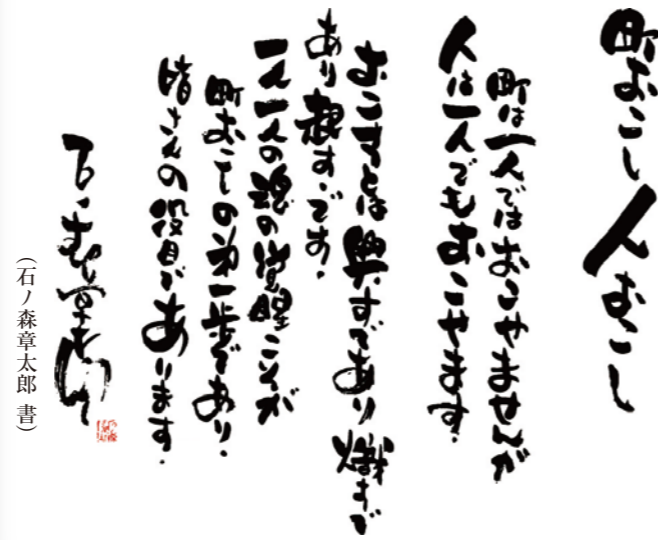 町おこし人おこし
町は一人ではおこせませんが
人は一人でもおこせます。
おこすとは興すであり熾すで
あり起すです。
一人一人の魂の覚醒こそが
町おこしの第一歩であり、
皆さんの役目であります。
石ノ森章太郎
(石ノ森章太郎 書)